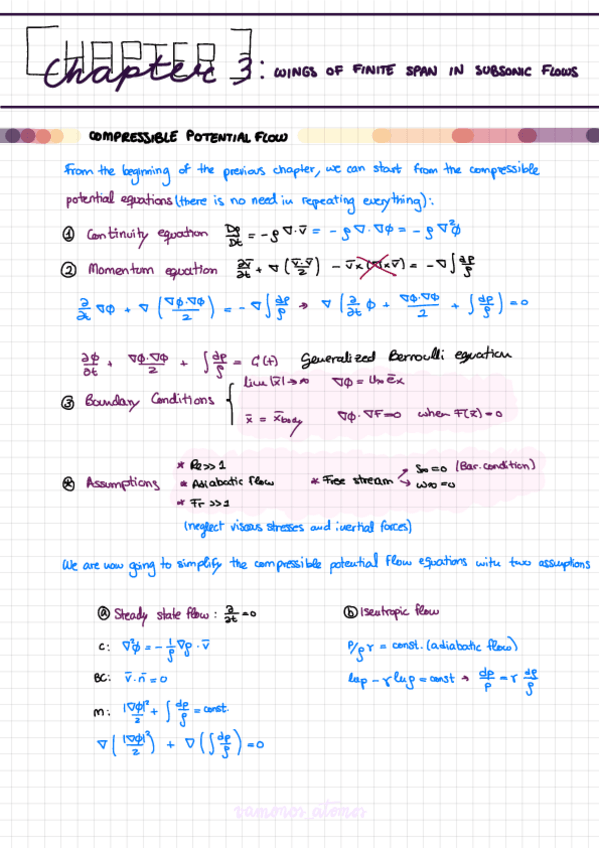 CHAPTER
Chapter 3: WINGS OF FINITE SPAN IN SUBSONIC FLOWS
COMPRESSIBLE POTENTIAL FLOW
From the beginning of the previous chapter, we can start from the compressible
potential equations (there is no need in repeating everything):
① Continuity equation Dρ/Dt = -ρ∇·v̄ = -ρ∇·∇φ = -ρ∇²φ
② Momentum equation ∂v̄/∂t + ∇(v̄·v̄/2) - v̄×(∇×v̄) = -∇∫dp/ρ
∂/∂t ∇φ + ∇(∇φ·∇φ/2) = -∇∫dp/ρ → ∇(∂/∂t φ + ∇φ·∇φ/2 + ∫dp/ρ) = 0
∂φ/∂t + ∇φ·∇φ/2 + ∫dp/ρ = G(t) Generalized Bernoulli equation
③ Boundary Conditions { lim |x̄|→∞ ∇φ = U∞ ēx
x̄ = x̄body ∇φ·∇F=0 when F(x̄)=0
⊛ Assumptions * Re>>1
* Adiabatic flow
* Fr>>1
* Free stream → S∞=0 (Bar. condition)
→ ω∞=0
(neglect viscous stresses and inertial forces)
We are now going to simplify the compressible potential flow equations with two assumptions
ⓐ Steady state flow: ∂/∂t=0 ⓑ Isentropic flow
C: ∇²φ = -1/ρ ∇ρ·v̄ P/ργ = const. (adiabatic flow)
BC: v̄·n̄=0 lnp - γ lnρ = const → dp/p = γ dρ/ρ
m: |∇φ|²/2 + ∫dp/ρ = const.
∇(|∇φ|²/2) + ∇(∫dp/ρ) = 0
vamonos_atomos